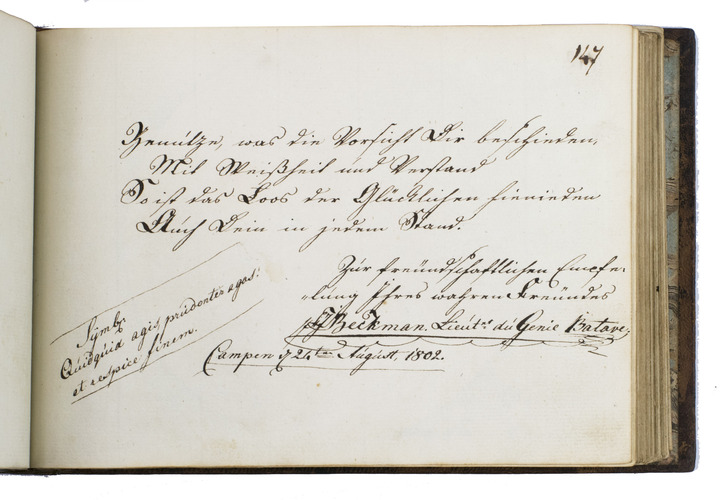 147
Benütze, was die Vorsicht Dir beschieden,
Mit Weißheit und Verstand
So ist das Loos der Glücklichen hienieden
Auch Dein in jedem Stand.
Zur freündschaftlichen Empfe-
lung Ihres wahren Freündes
Beckman. Lieut: dü Genie Batave;
Campen 21 August, 1802.
Symb.
Quidquid agis prüdenter agas:
et respice finem.